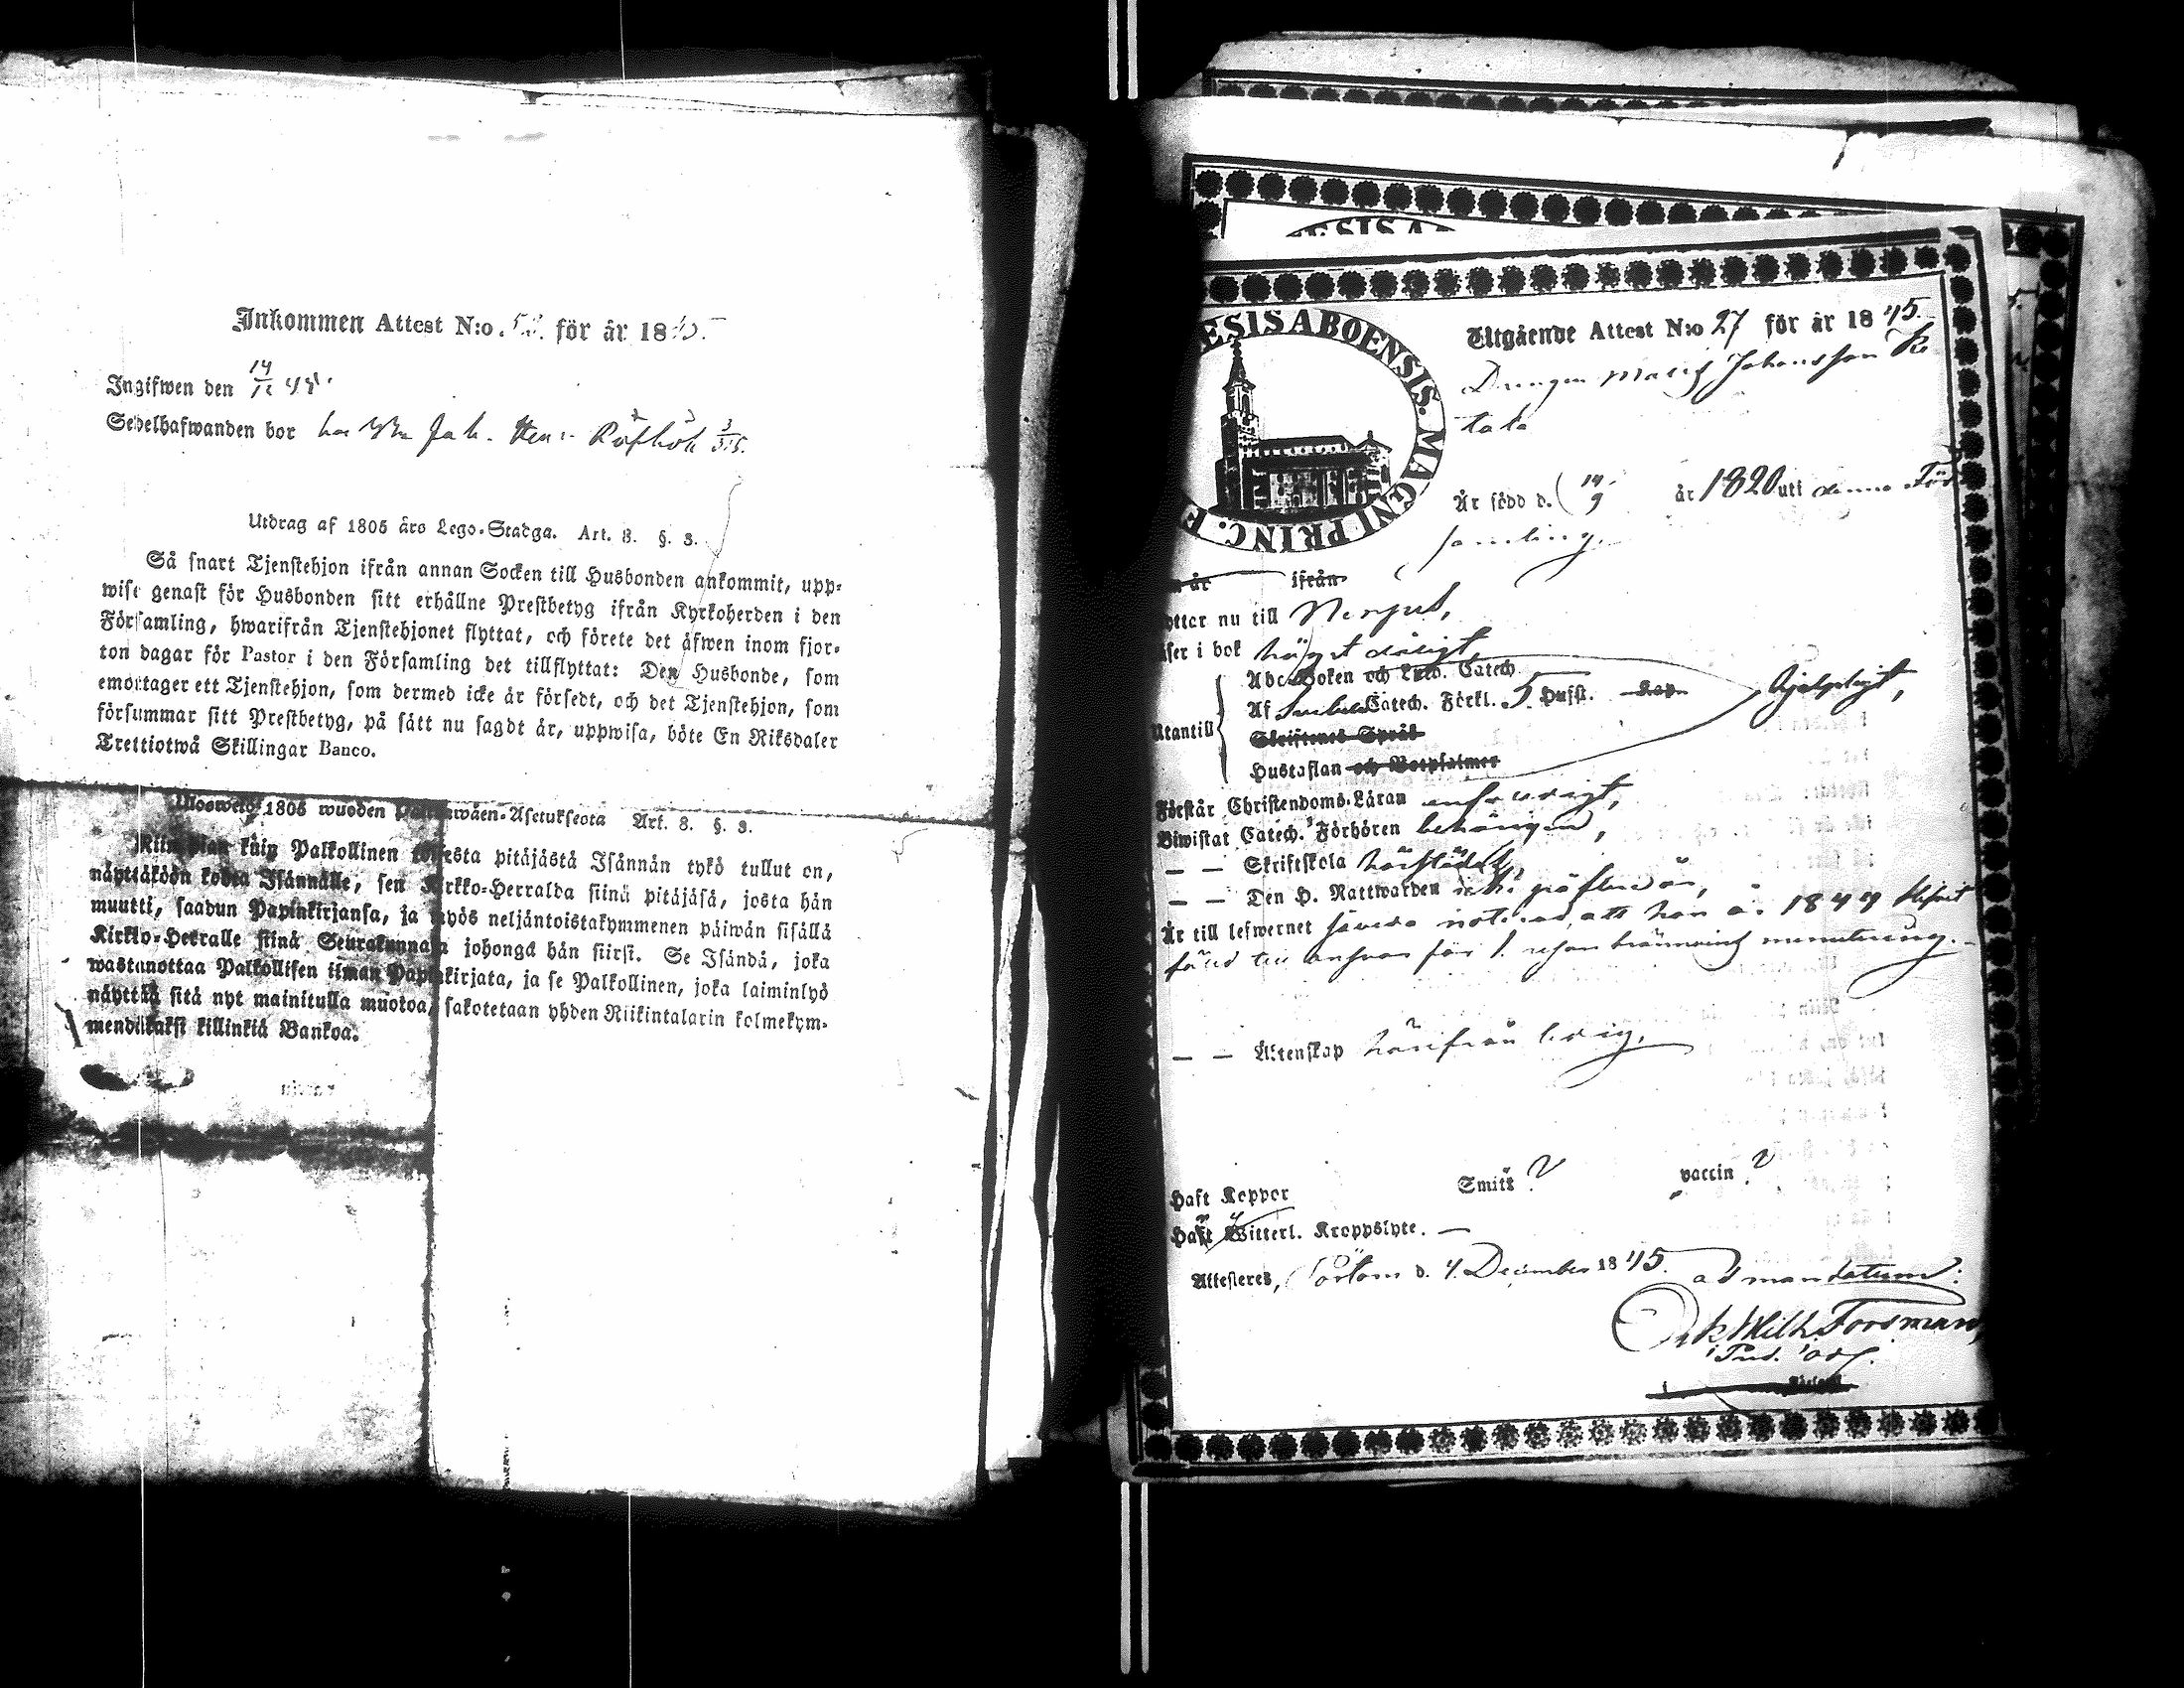 Inkommen Attest N:o 52. för år 1845.
Ingifwen den 14/12 45.
Sedelhafwanden bor hos Jak. 3/315.
Utdrag af 1805 års Lego-Stadga. Art. 8. §. 3.
Så snart Tjenstehjon ifrån annan Socken till Husbonden ankommit, upp-
wise genast för Husbonden sitt erhållne Prestbetyg ifrån Kyrkoherden i den
Församling, hwarifrån Tjenstehjonet flyttat, och förete det äfwen inom fjor-
ton dagar för Pastor i den Församling det tillflyttat: Den Husbonde, som
emottager ett Tjenstehjon, som dermed icke är försedt, och det Tjenstehjon, som
försummar sitt Prestbetyg, på sätt nu sagdt är, uppwisa, böte En Riksdaler
Trettiotwå Skillingar Banco.
Uloswetö 1805 wuoden Palkkawäen-Asetuksesta Art. 8. §. 3.
Niin pian kuin Palkollinen toisesta pitäjästä Isännän tykö tullut on,
näyttäköön kohta Isännälle, sen Kirkko-Herralda siinä pitäjäsä, josta hän
muutti, saadun Papinkirjansa, ja myös neljäntoistakymmenen päiwän sisällä
Kirkko-Herralle siinä Seurakunnasa johonga hän siirsi. Se Isändä, joka
wastanottaa Palkollisen ilman Papinkirjata, ja se Palkollinen, joka laiminlyö
näyttää sitä nyt mainitulla muotoa, sakotetaan yhden Riikintalarin kolmekym-
mendäkaksi killinkiä Bankoa.
ESIS A
ESIS ABOENSIS. MAGNI PRINC. F
Utgående Attest N:o 27 för år 1845.
Drengen Matts Johansson Re
tala
Är född d. 14/9 år 1820 uti denna För
samling,
år ifrån
yttar nu till Nerpes,
äser i bok högst dåligt,
Abc-Boken och Luth. Catech.
Af Svebelii Catech. Förkl. 5. Hufst. Kap. hjelpligt,
Utantill
Skriftenes Språk
Hustaflan och Botpsalmer
Förstår Christendoms-Läran enfaldigt,
Biwistat Catech. Förhören behörigen,
— — Skriftskola härstädes,
— — Den H. Nattwarden
Är till lefwernet notered, att han år 1844 blifvit
fälld till ansvar för 1. resan brännvins minutering.
— — Äktenskap härifrån ledig,
Haft Koppor Smitt ? vaccin ?
Haft Witterl. Kroppslyte. —
Attesteras, Pörtom d. 4. December 1845. ad mandatum:
Wilh. Forsman,